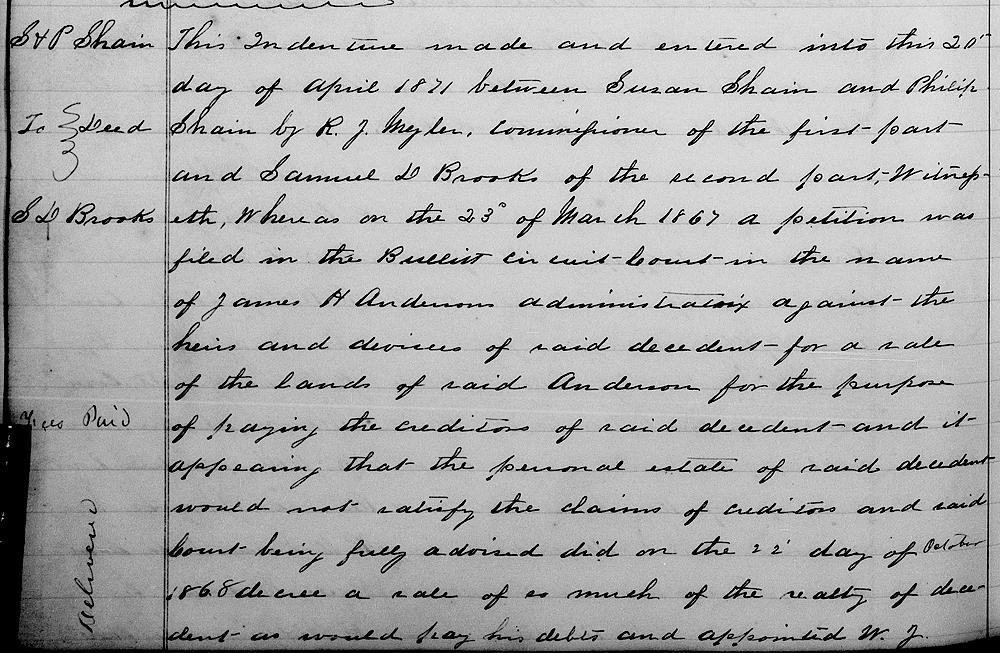 S & P Shain This Indenture made and entered into this 20"
day of April 1871 between Susan Shain and Philip
To Deed Shain by R. J. Meyler, Commissioner of the first part
and Samuel D Brooks of the second part, Witness-
S D Brooks eth, Whereas on the 23d of March 1867 a petition was
filed in the Bullitt Circuit Court in the name
of James H Andersons administratrix against the
heirs and devisees of said decedent for a sale
of the lands of said Anderson for the purpose
Fees Paid of paying the creditors of said decedent and it
appearing that the personal estate of said decedent
would not satisfy the claims of creditors and said
Delivered Court being fully advised did on the 22' day of October
1868 decree a sale of so much of the realty of dece-
dent as would pay his debts and appointed W. J.